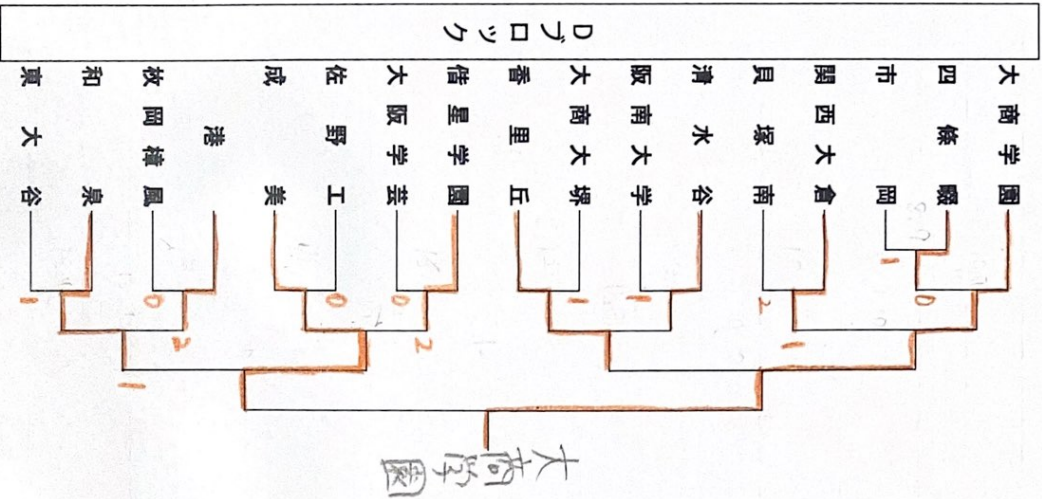 Dブロック
大商学園
四條畷
市岡
関西大倉
貝塚南
清水谷
阪南大学
大商大堺
香里丘
偕星学園
大阪学芸
佐野工
成美
港
枚岡樟風
和泉
東大谷
1
0
2
1
1
0
0
0
1
1
2
2
1
大商学園